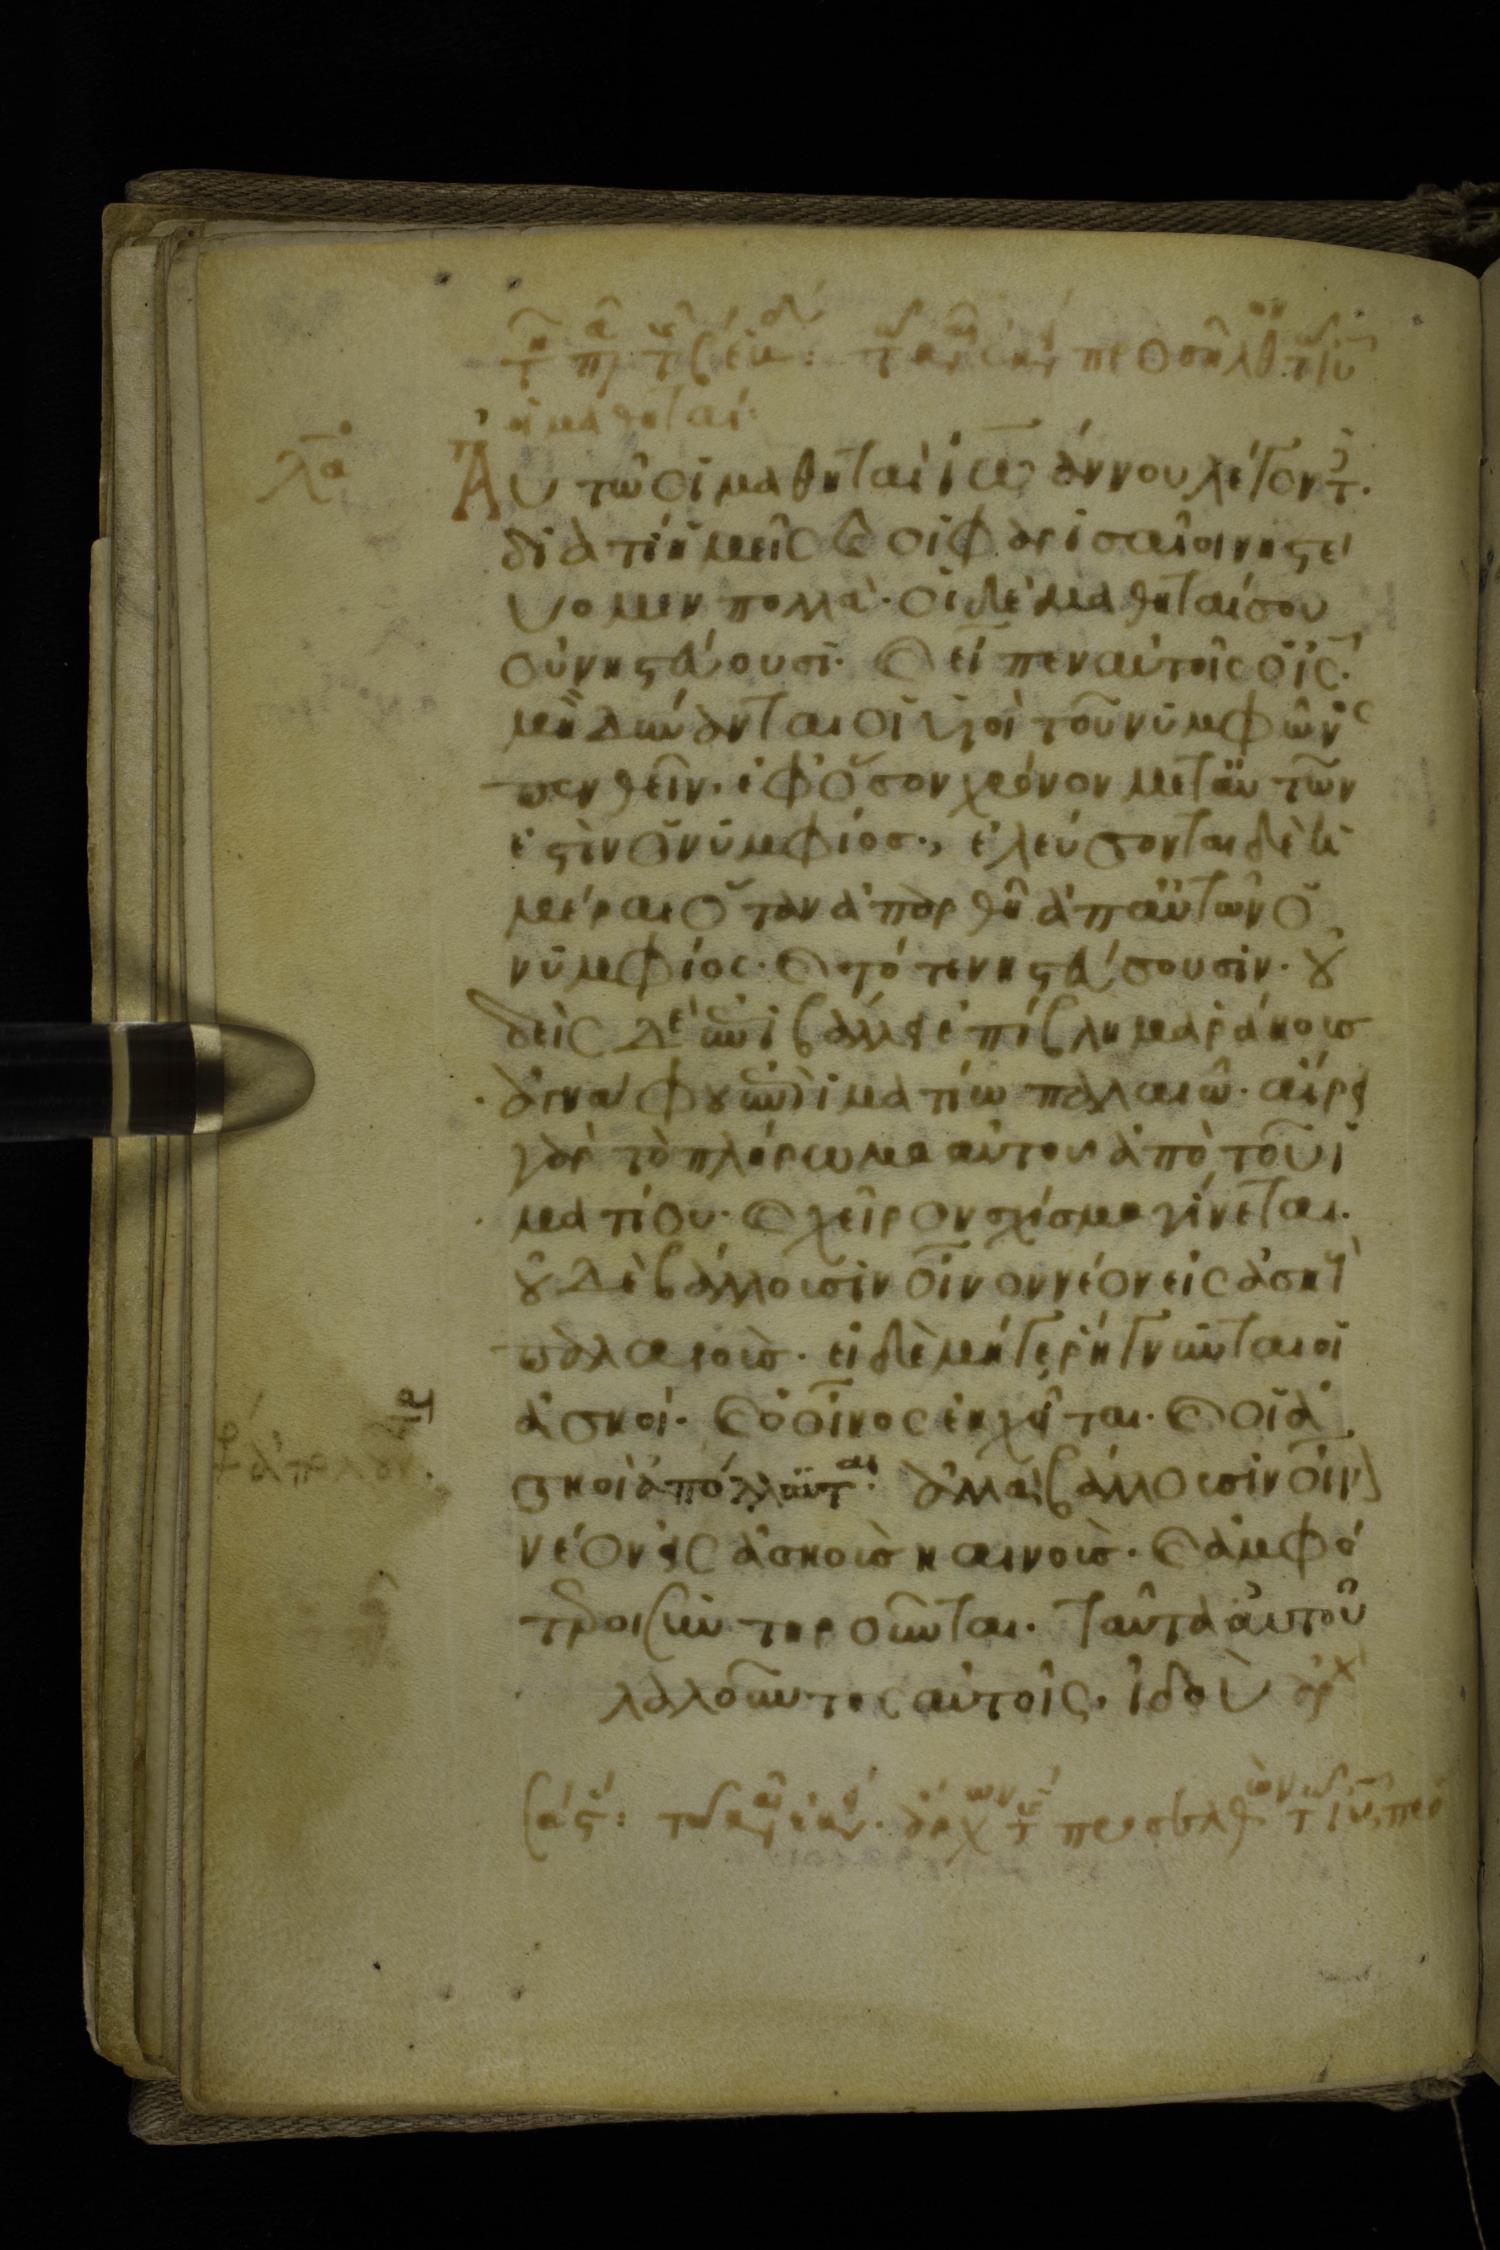 οἱ μαθηταί:
Αὐτῶ οἱ μαθηταὶ ἰωάννου λέγοντ.
διὰ τί ἡμεῖς καὶ οἱ φαρισαῖοι νηστεύ
ομεν πολλά· οἱ δὲ μαθηταί σου
οὐ νηστεύουσι· καὶ εἶπεν αὐτοῖς ὁ ἰς·
μὴ δύνανται οἱ υἱοὶ τοῦ νυμφῶνος
πενθεῖν· ἐφ' ὅσον χρόνον μετ' αὐτῶν
ἐστὶν ὁ νυμφίος·, ἐλεύσονται δὲ ἡ
μέραι ὅταν ἀπαρθῆ ἀπ' αὐτῶν ὁ
νυμφίος· καὶ τότε νηστεύσουσιν· οὐ
δεὶς δὲ ἐπιβάλλει ἐπίβλημα ῥάκους
ἀγνάφου ἐπὶ ἱματίω παλαιῶ· αἴρει
γὰρ τὸ πλήρωμα αὐτοῦ ἀπὸ τοῦ ἱ
ματίου· καὶ χεῖρον σχίσμα γίνεται.
οὐδὲ βάλλουσιν οἶνον νέον εἰς ἀσκοὺ
παλαιούς· εἰ δὲ μήγε ῥήγνυνται οἱ
ἀσκοί· καὶ ὁ οἶνος ἐκχεῖται· καὶ οἱ ἀ
σκοὶ ἀπόλλυνται· ἀλλὰ βάλλουσιν οἶνον
νέον εἰς ἀσκοὺς καινούς· καὶ ἀμφό
τεροι συντηροῦνται. ταῦτα αὐτοῦ
λαλοῦντος αὐτοῖς, ἰδοὺ ἀρχ